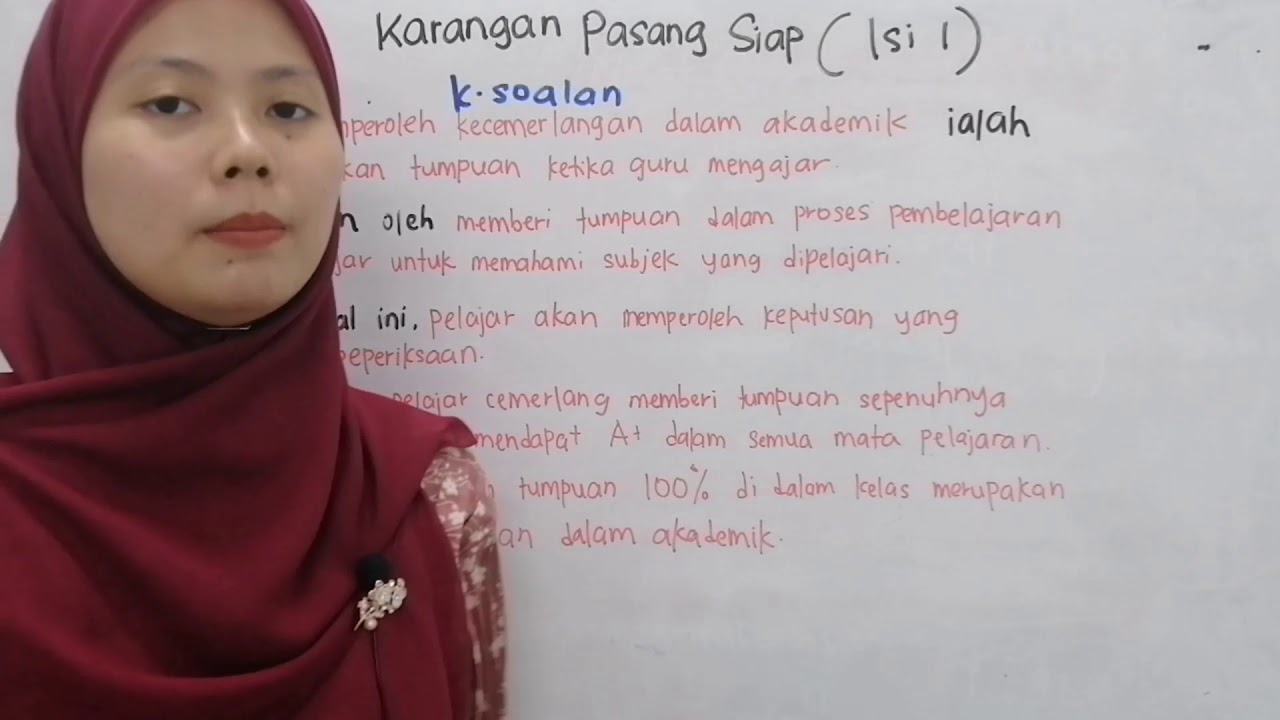 Karangan Pasang Siap ( Isi 1 )
k.soalan
peroleh kecemerlangan dalam akademik ialah
kan tumpuan ketika guru mengajar.
n oleh memberi tumpuan dalam proses pembelajaran
jar untuk memahami subjek yang dipelajari.
al ini, pelajar akan memperoleh keputusan yang
peperiksaan.
pelajar cemerlang memberi tumpuan sepenuhnya
mendapat A+ dalam semua mata pelajaran.
tumpuan 100% di dalam kelas merupakan
an dalam akademik.